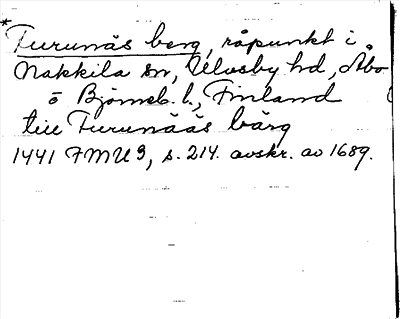 *Turunäs berg, råpunkt i
Nakkila sn, Ulvsby hd, Åbo
o Björneb. l., Finland
till Turunääs bärg
1441 FMU 3, s. 214. avskr. av 1689.